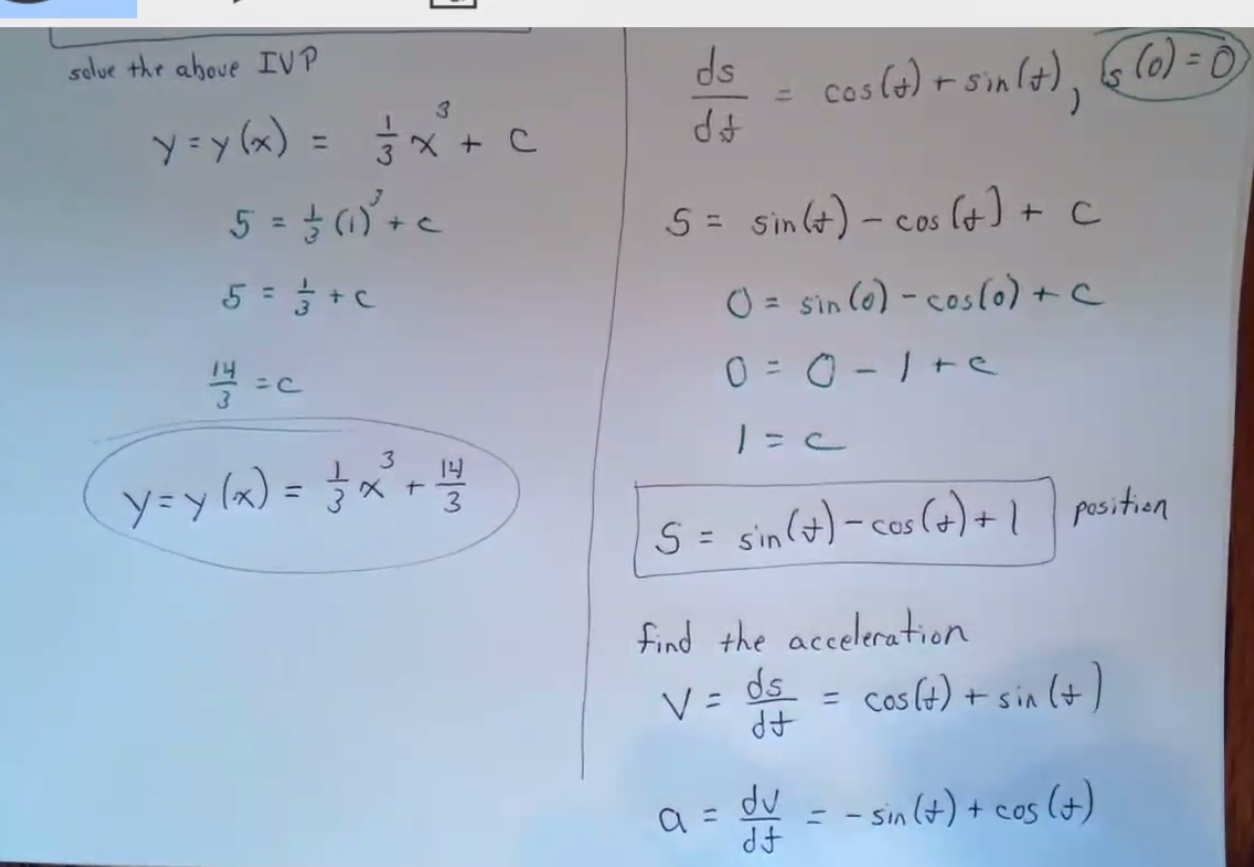 solve the above IVP
y = y(x) = 1/3 x^3 + c
5 = 1/3 (1)^3 + c
5 = 1/3 + c
14/3 = c
y = y(x) = 1/3 x^3 + 14/3
ds/dt = cos(t) + sin(t), s(0) = 0
S = sin(t) - cos(t) + c
0 = sin(0) - cos(0) + c
0 = 0 - 1 + c
1 = c
S = sin(t) - cos(t) + 1 position
find the acceleration
V = ds/dt = cos(t) + sin(t)
a = dv/dt = - sin(t) + cos(t)